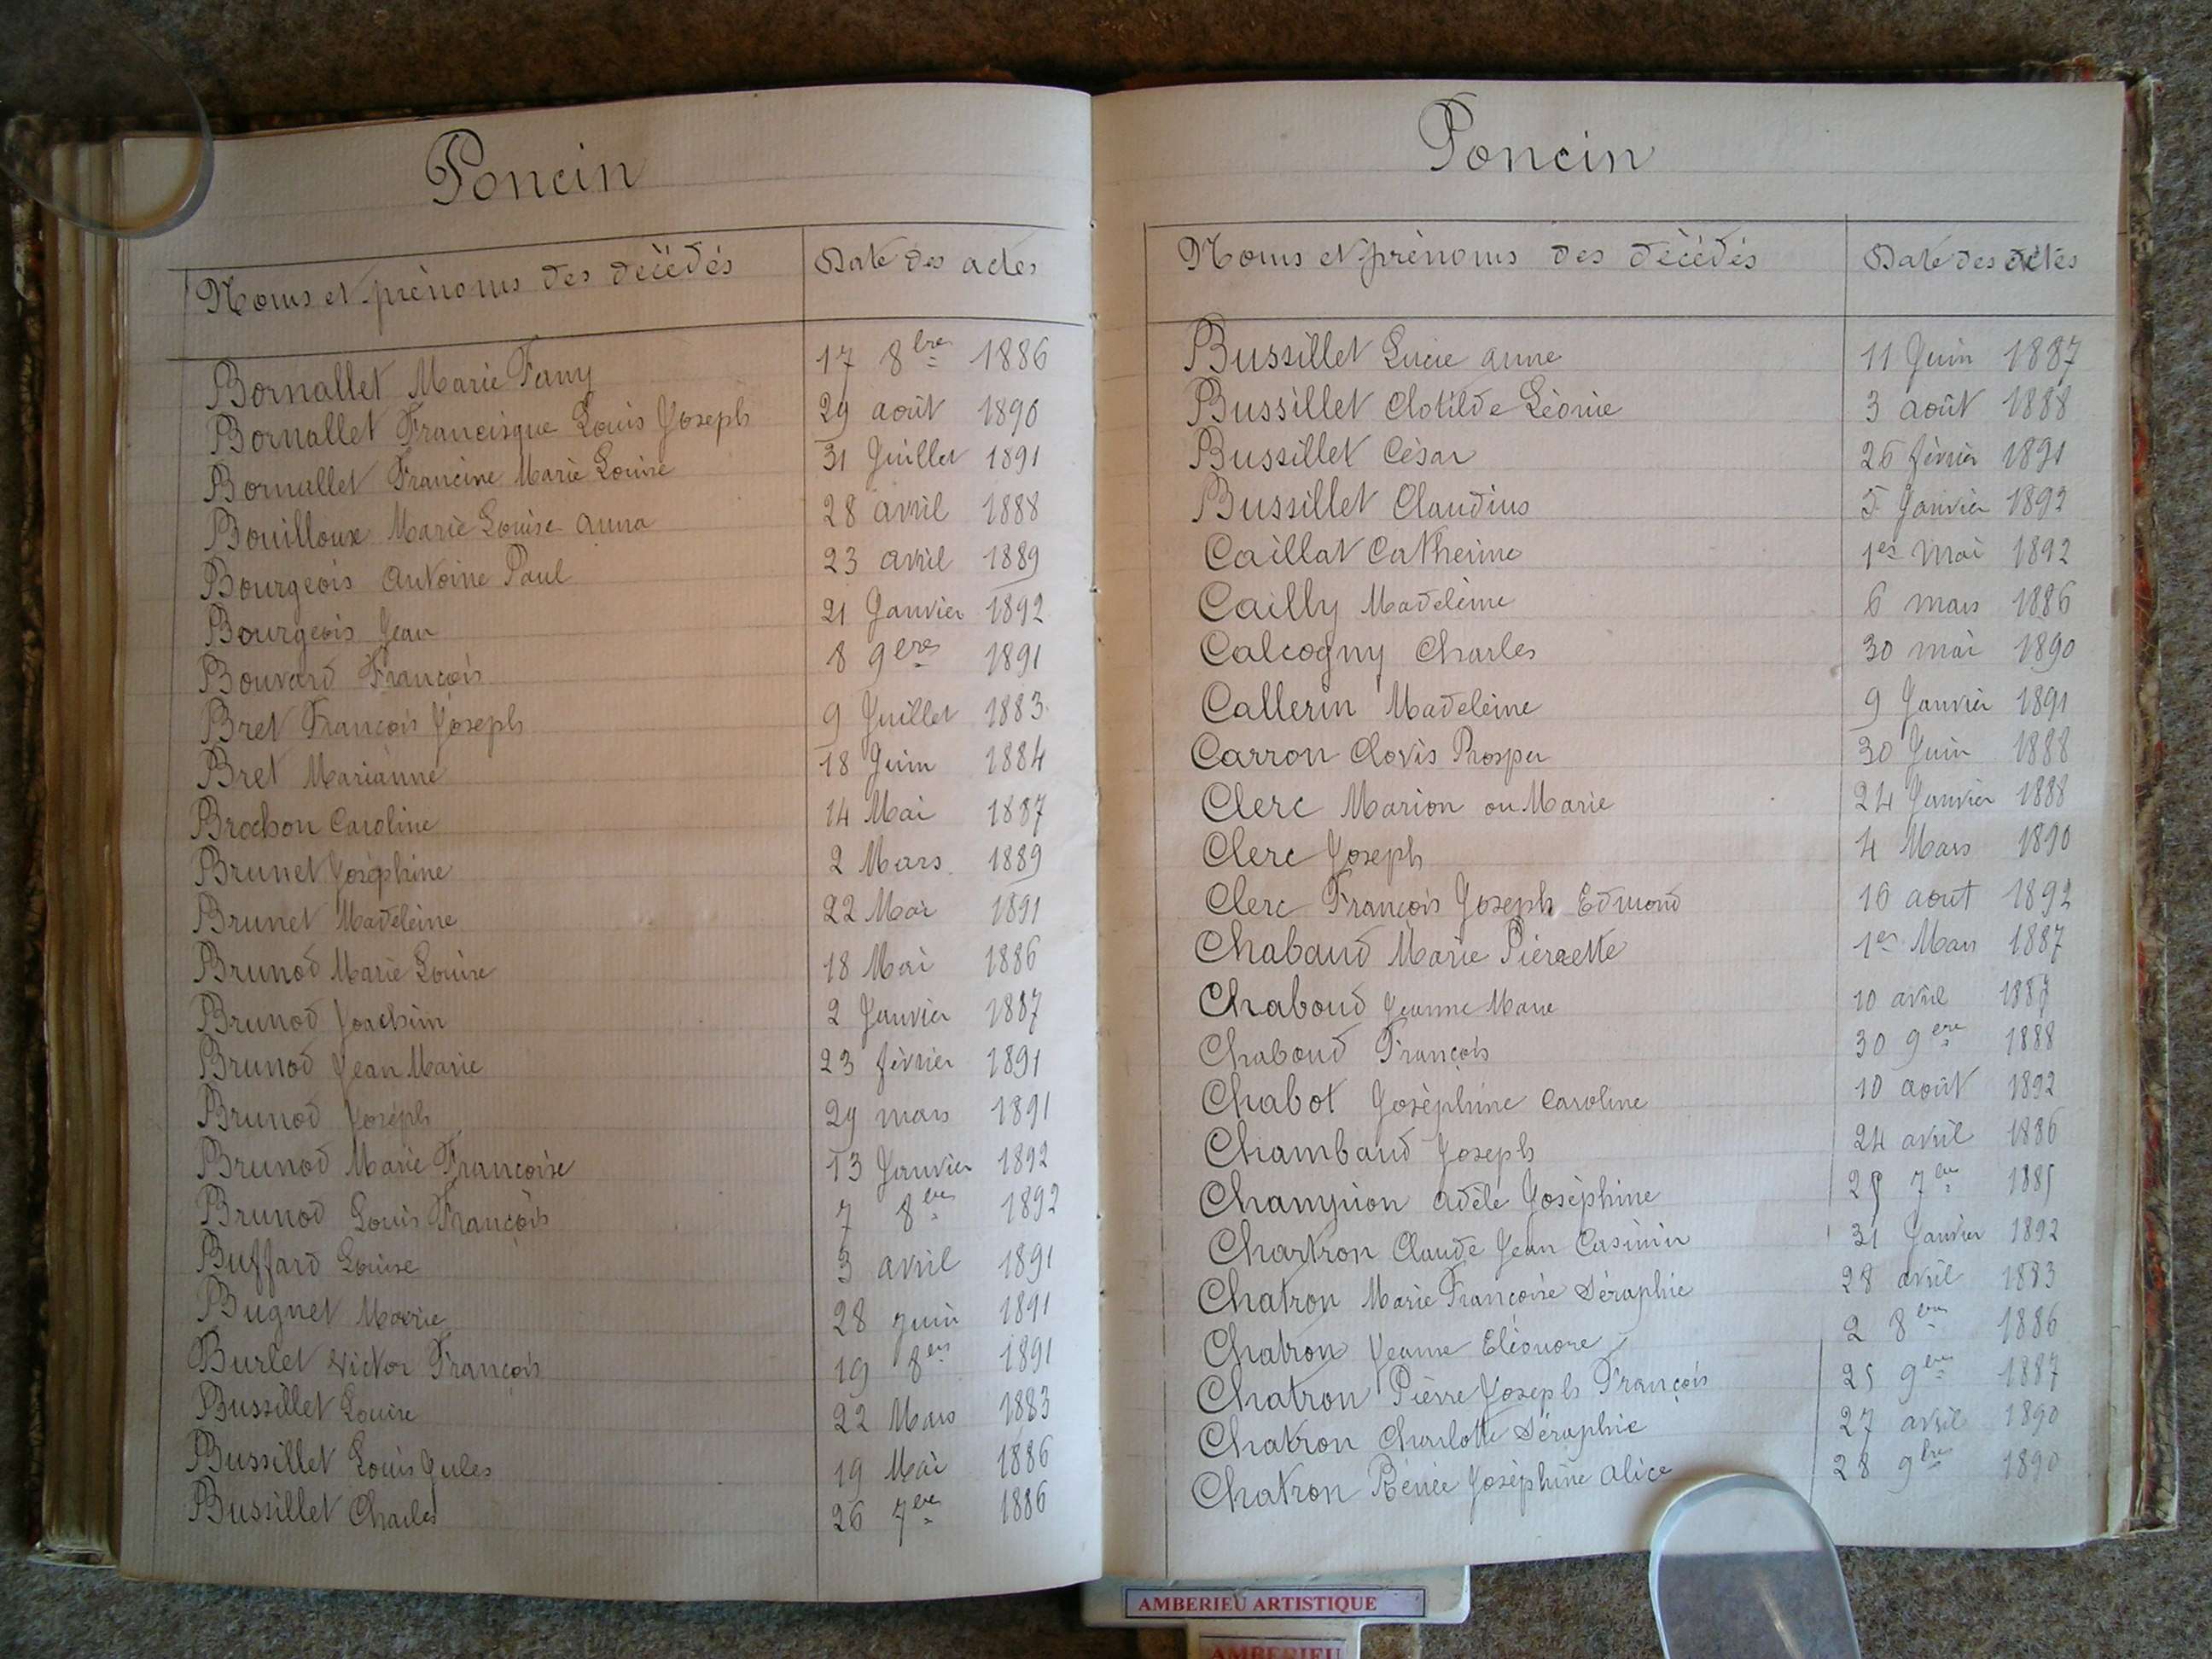 Poncin
Noms et prénoms des décédés Date des actes
Bornallet Marie Fany 17 8bre 1886
Bornallet Francisque Louis Joseph 29 août 1890
Bornallet Francine Marie Louise 31 Juillet 1891
Bouilloux Marie Louise anna 28 avril 1888
Bourgeois Antoine Paul 23 avril 1889
Bourgeois Jean 21 Janvier 1892
Bouvard François 8 9bre 1891
Bret François Joseph 9 Juillet 1883
Bret Marianne 18 Juin 1884
Brochon Caroline 14 Mai 1887
Brunet Joséphine 2 Mars 1889
Brunet Madeleine 22 Mai 1891
Brunod Marie Louise 18 Mai 1886
Brunod Joachim 2 Janvier 1887
Brunod Jean Marie 23 février 1891
Brunod Joséph 29 mars 1891
Brunod Marie Françoise 13 Janvier 1892
Brunod Louis François 7 8bre 1892
Buffard Louise 3 avril 1891
Bugnet Marie 28 juin 1891
Burlet Victor François 19 8bre 1891
Bussillet Louise 22 Mars 1883
Bussillet Louis Jules 19 Mai 1886
Bussillet Charles 26 7bre 1886
Poncin
Noms et prénoms des décédés Date des actes
Bussillet Lucie anne 11 Juin 1887
Bussillet Clotilde Léonie 3 août 1888
Bussillet César 26 février 1891
Bussillet Claudius 5 Janvier 1892
Caillat Catherine 1er Mai 1892
Cailly Madeleine 6 mars 1886
Calcogny Charles 30 mai 1890
Callerin Madeleine 9 Janvier 1891
Carron Clovis Prosper 30 Juin 1888
Clerc Marion ou Marie 24 Janvier 1888
Clerc Joseph 4 Mars 1890
Clerc François Joseph Edmond 16 aout 1892
Chabaud Marie Pierrette 1er Mars 1887
Chaboud Jeanne Marie 10 avril 1887
Chaboud François 30 9bre 1888
Chabot Joséphine Caroline 10 août 1892
Chambaud Joseph 24 avril 1886
Champion adèle Joséphine 25 7bre 1885
Chartron Claude Jean Casimir 31 Janvier 1892
Chatron Marie Françoise Séraphie 28 avril 1883
Chatron Jeanne Eléonore 2 8bre 1886
Chatron Pierre Joseph François 25 9bre 1887
Chatron Charlotte Séraphie 27 avril 1890
Chatron Rénée Joséphine alice 28 9bre 1890
AMBERIEU ARTISTIQUE
AMBERIEU